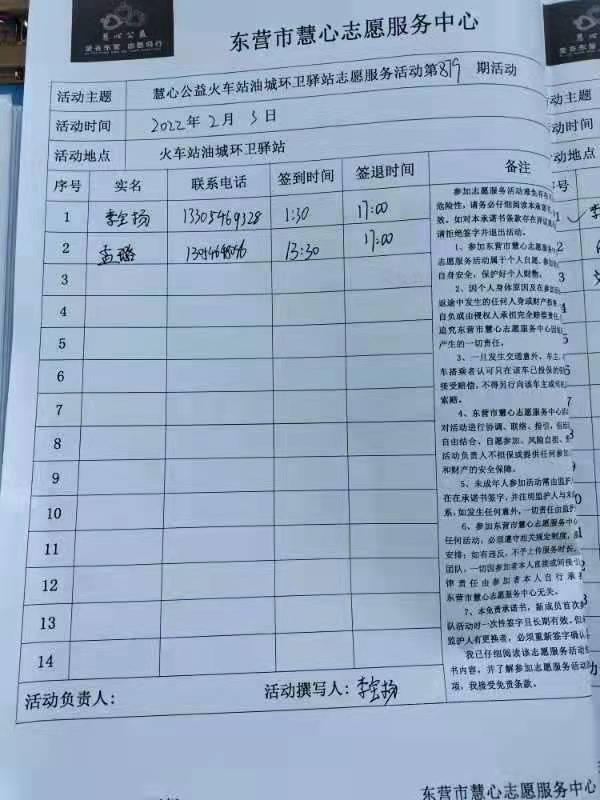 慧心公益
爱在东营 由慧同行
东营市慧心志愿服务中心
活动主题 慧心公益火车站油城环卫驿站志愿服务活动第879期活动
活动时间 2022年2月3日
活动地点 火车站油城环卫驿站
序号 实名 联系电话 签到时间 签退时间 备注
1 李全扬 13305469328 1:30 17:00
2 孟璐 13:30 17:00
3
4
5
6
7
8
9
10
11
12
13
14
参加志愿服务活动难免存在
危险性，请务必仔细阅读本承诺
效。如对本承诺书条款存在异议
请拒绝签字并退出活动。
1、参加东营市慧心志愿服务中
志愿服务活动属于个人自愿，参加
自身安全，保护好个人财物。
2、因个人身体原因及在参加
返途中发生的任何人身或财产损
自负或由侵权人承担完全赔偿责任，
追究东营市慧心志愿服务中心因
产生的一切责任。
3、一旦发生交通意外，车主、
车搭乘者认可只在该车已投保的
接受赔偿，不得另行向该车主或
索赔。
4、东营市慧心志愿服务中心
对活动进行协调、联络、指引，
自由结合、自愿参加、风险自担、
活动负责人不担保或提供任何参加
和财产的安全保障。
5、未成年人参加活动需由监护
在在承诺书签字，并注明监护人与
系，如发生任何意外，一切责任由监护
6、参加东营市慧心志愿服务中心
任何活动，必须遵守相关规定制度，
安排；如有违反，不予上传服务时长，
团队，一切因参加者本人直接或间接
律责任由参加者本人自行承
东营市慧心志愿服务中心无关。
7、本免责承诺书，新成员首次参
队活动时一次性签字且长期有效。但
监护人有更换者，必须重新签字确认
我已仔细阅读该志愿服务活动
书内容，并了解参加志愿服务活动
项，我接受免责条款。
活动负责人： 活动撰写人：李全扬
活动主题
活动时间
活动地点
序号
东营市慧心志愿服务中心